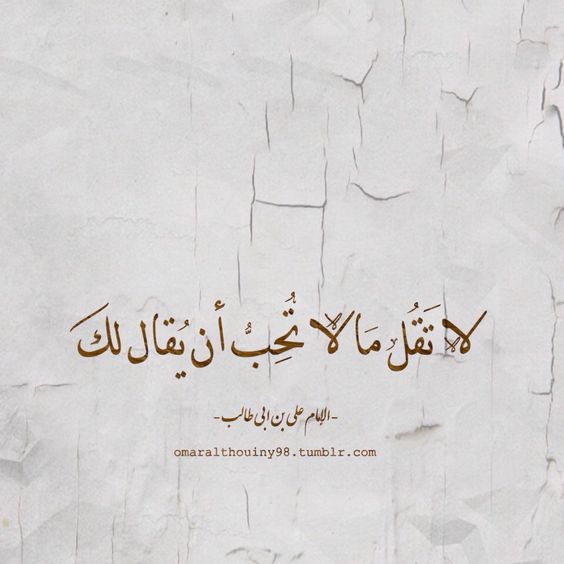 لا تَقُل مَا لا تُحِبُّ أن يُقال لكَ
-الإمام علي بن ابي طالب-
omaralthouiny98.tumblr.com